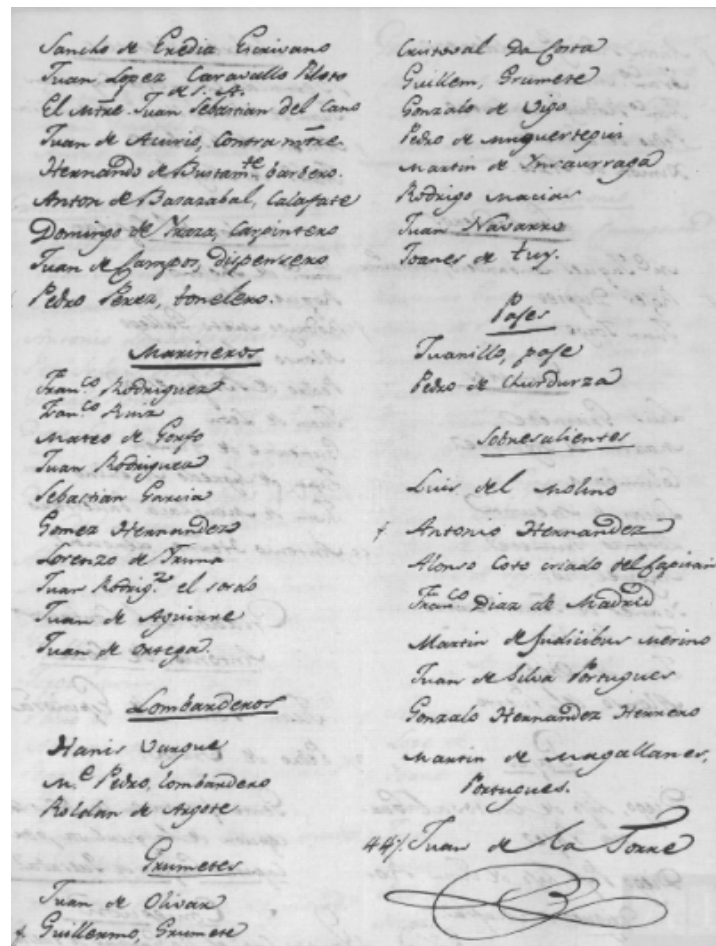 Sancho de Eredia Escrivano
Juan Lopez Caravallo Piloto
de S. A.
El Mtre. Juan Sebastian del Cano
Juan de Acurio, Contra mtre.
Hernando de Bustamte. barbero.
Anton de Basazabal, Calafate
Domingo de Yraza, Carpintero
Juan de Campos, Dispensero
Pedro Perez, tonelero.
Marineros
Franco. Rodriguez
Franco. Ruiz
Mateo de Gorfo
Juan Rodriguez
Sebastian Garcia
Gomez Hernandez
Lorenzo de Truna
Juan Rodrigz. el sordo
Juan de Aguirre
Juan de Ortega.
Lombarderos
Hanis Vargue
M.e Pedro, Lombardero
Roldan de Argote
Grumetes
Juan de Olivar
Guillermo, Grumete
Cristoval Da Costa
Guillem, Grumete
Gonzalo de Vigo
Pedro de Muguertegui
Martin de Ynsaurraga
Rodrigo Macias
Juan Navarro
Joanes de tuy.
Pajes
Juanillo, paje
Pedro de Churdurza
Sobresalientes
Luis del Molino
Antonio Hernandez
Alonso Coto criado del Capitan
Franco Diaz de Madrid
Martin de Judicibus Merino
Juan de Silva Portugues
Gonzalo Hernandez Herrero
Martin de Magallanes,
Portugues.
44/. Juan de la Torre